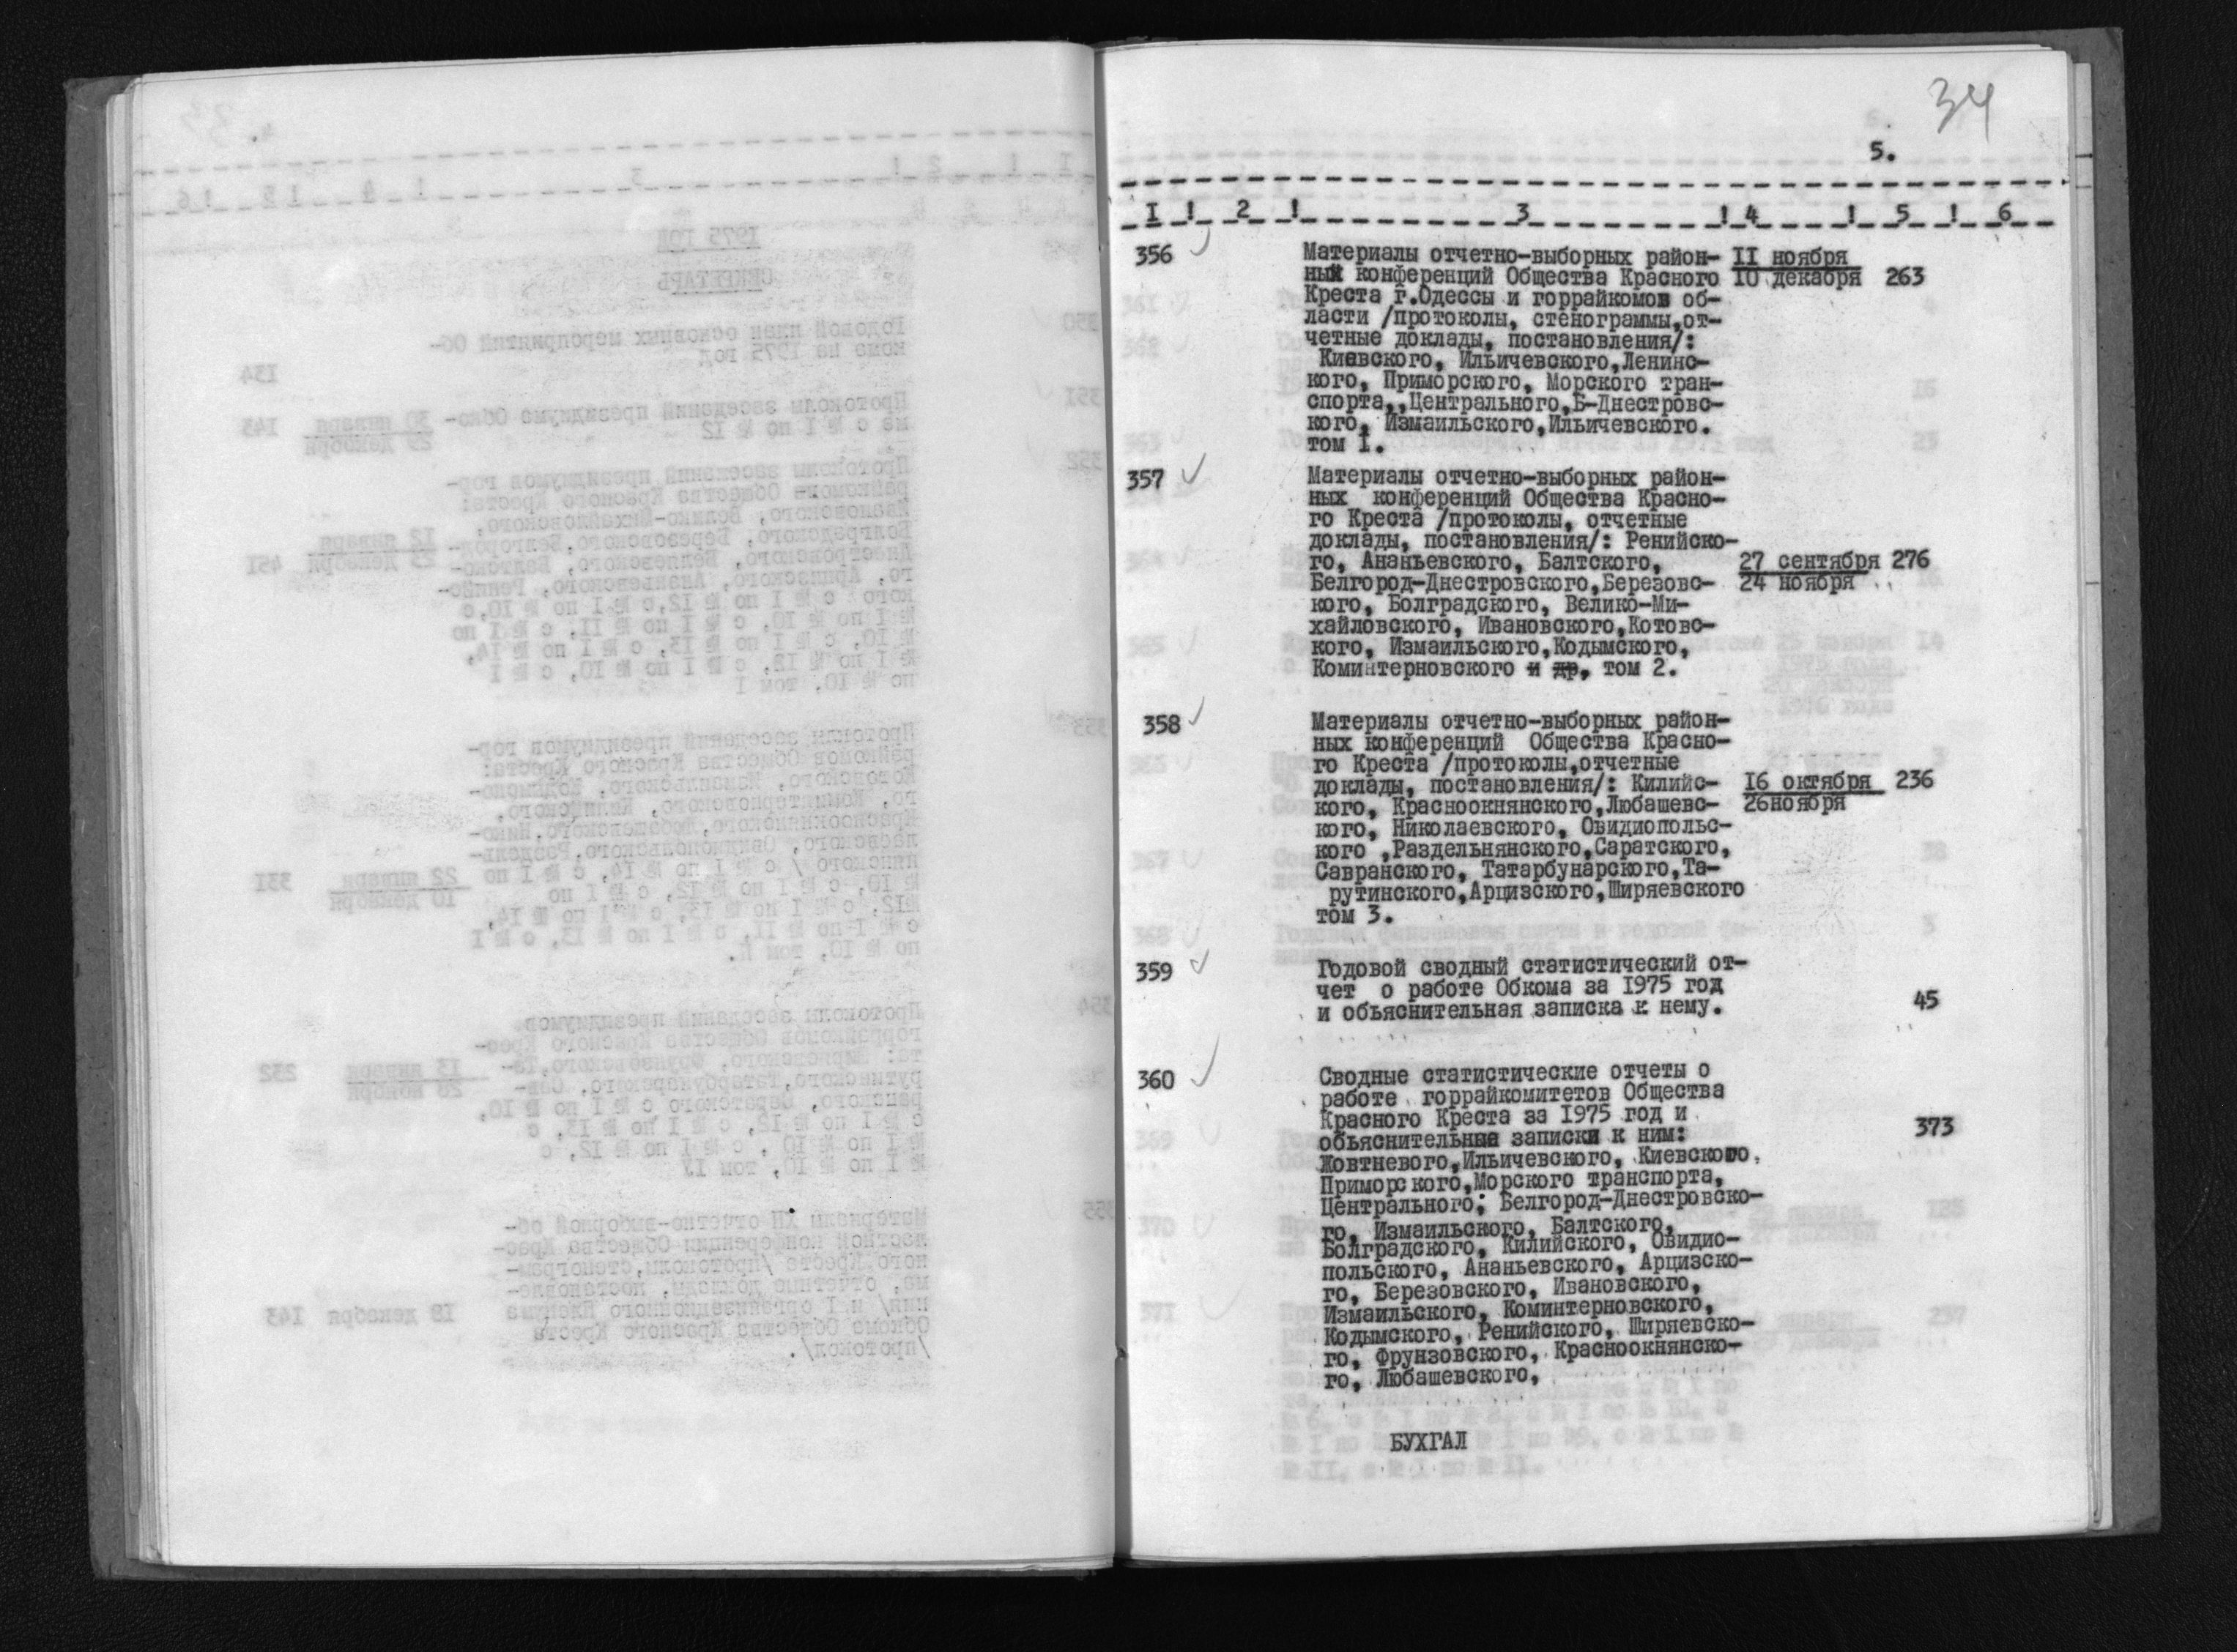 34
5.
I ! 2 ! 3 ! 4 ! 5 ! 6
356 Материалы отчетно-выборных район- II ноября
ных конференций Общества Красного IO декабря 263
Креста г.Одессы и горрайкомов об-
ласти /протоколы, стенограммы,от-
четные доклады, постановления/:
Киевского, Ильичевского,Ленинс-
кого, Приморского, Морского тран-
спорта,,Центрального,Б-Днестровс-
кого, Измаильского,Ильичевского.
том I.
357 Материалы отчетно-выборных район-
ных конференций Общества Красно-
го Креста /протоколы, отчетные
доклады, постановления/: Ренийско-
го, Ананьевского, Балтского, 27 сентября 276
Белгород-Днестровского,Березовс- 24 ноября
кого, Болградского, Велико-Ми-
хайловского, Ивановского,Котовс-
кого, Измаильского,Кодымского,
Коминтерновского и др, том 2.
358 Материалы отчетно-выборных район-
ных конференций Общества Красно-
го Креста /протоколы,отчетные
доклады, постановления/: Килийс- I6 октября 236
кого, Красноокнянского,Любашевс- 26ноября
кого, Николаевского, Овидиопольс-
кого ,Раздельнянского,Саратского,
Савранского, Татарбунарского,Та-
рутинского,Арцизского,Ширяевского
том 3.
359 Годовой сводный статистический от-
чет о работе Обкома за I975 год
и обьяснительная записка к нему. 45
360 Сводные статистические отчеты о
работе горрайкомитетов Общества
Красного Креста за I975 год и
обьяснительные записки к ним: 373
Жовтневого,Ильичевского, Киевского,
Приморского,Морского транспорта,
Центрального; Белгород-Днестровско-
го, Измаильского, Балтского,
Болградского, Килийского, Овидио-
польского, Ананьевского, Арцизско-
го, Березовского, Ивановского,
Измаильского, Коминтерновского,
Кодымского, Ренийского, Ширяевско-
го, Фрунзовского, Красноокнянско-
го, Любашевского,
БУХГАЛ